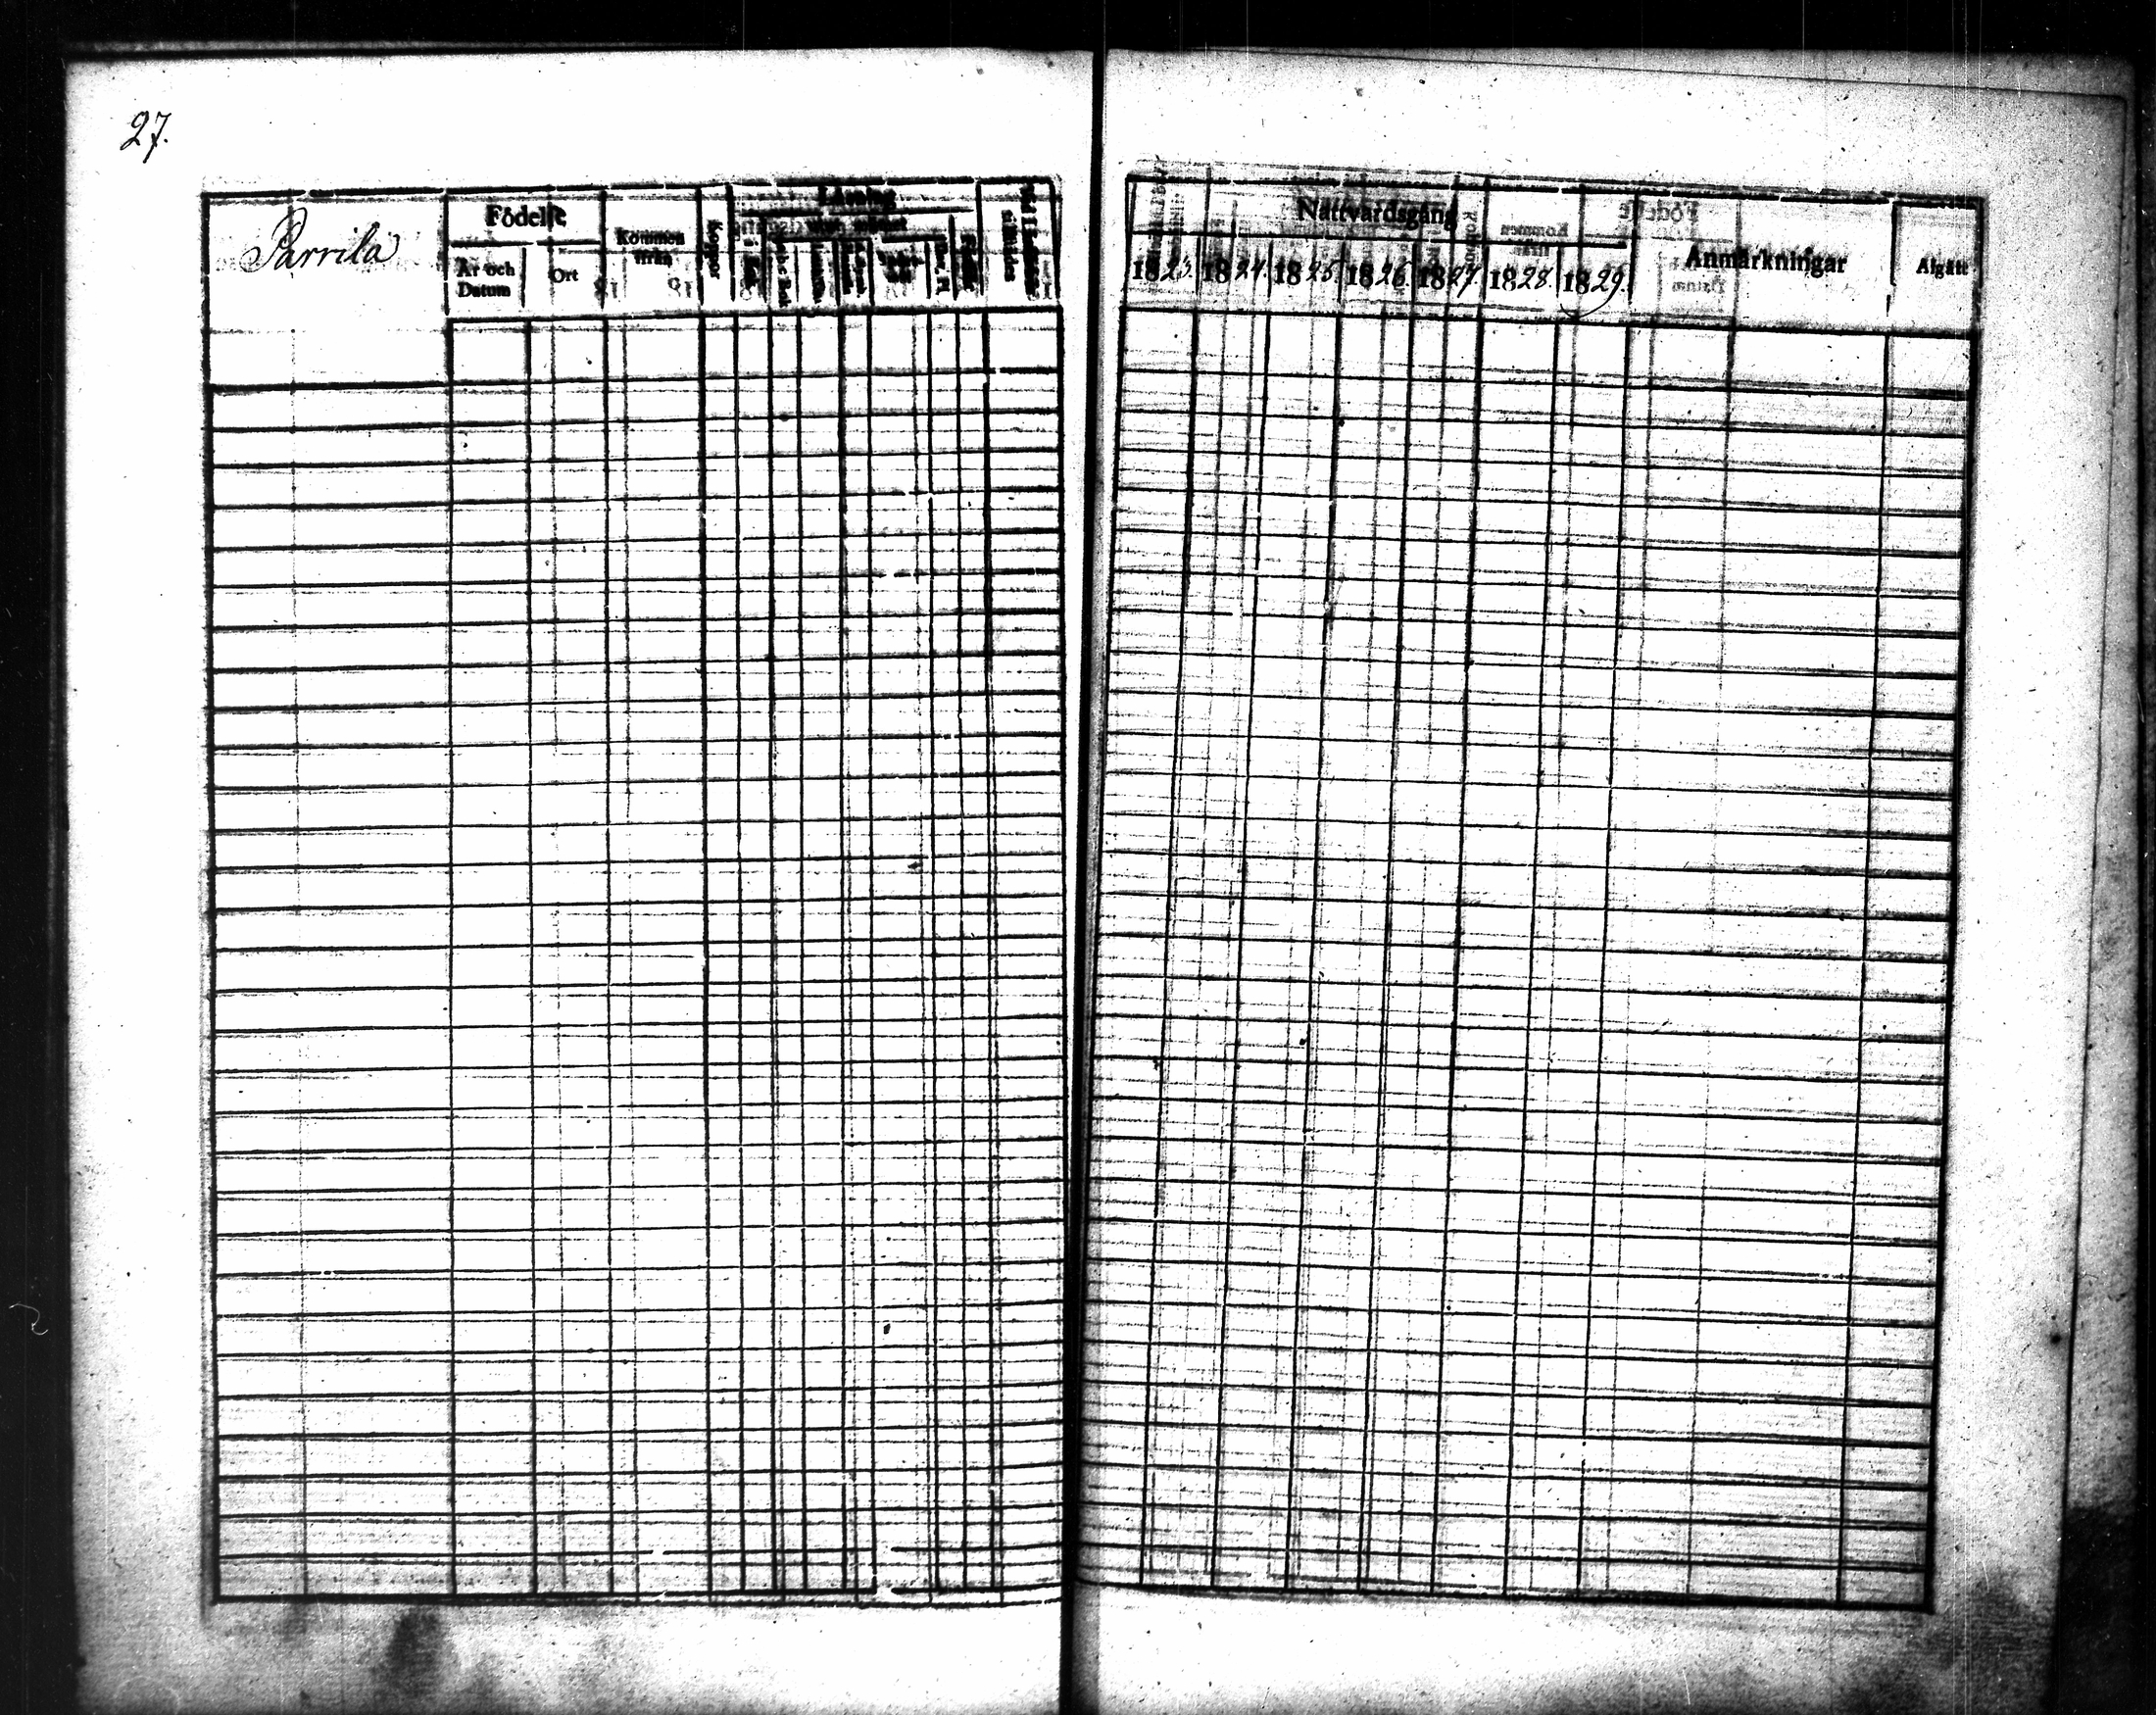 27.
Parrila
Födelse
År och Datum
Ort
Kommen ifrån
Koppor
Läsning
Nattvardsgång
1823. 1824. 1825. 1826. 1827. 1828. 1829.
Anmärkningar
Afgått